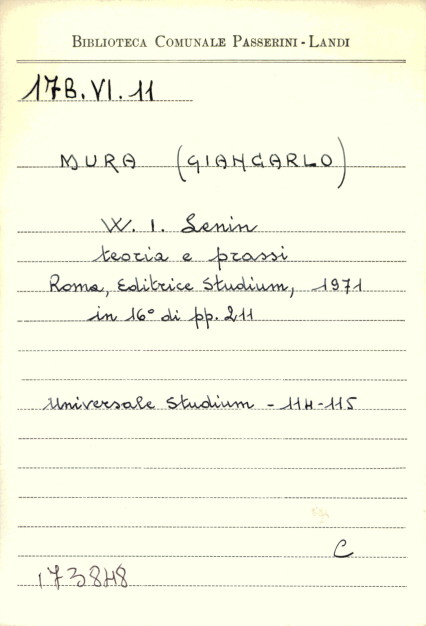 BIBLIOTECA COMUNALE PASSERINI-LANDI
17B.VI.11
MURA (GIANCARLO)
W. I. Lenin
teoria e prassi
Roma, Editrice Studium, 1971
in 16° di pp. 211
Universale Studium - 114-115
C
173848